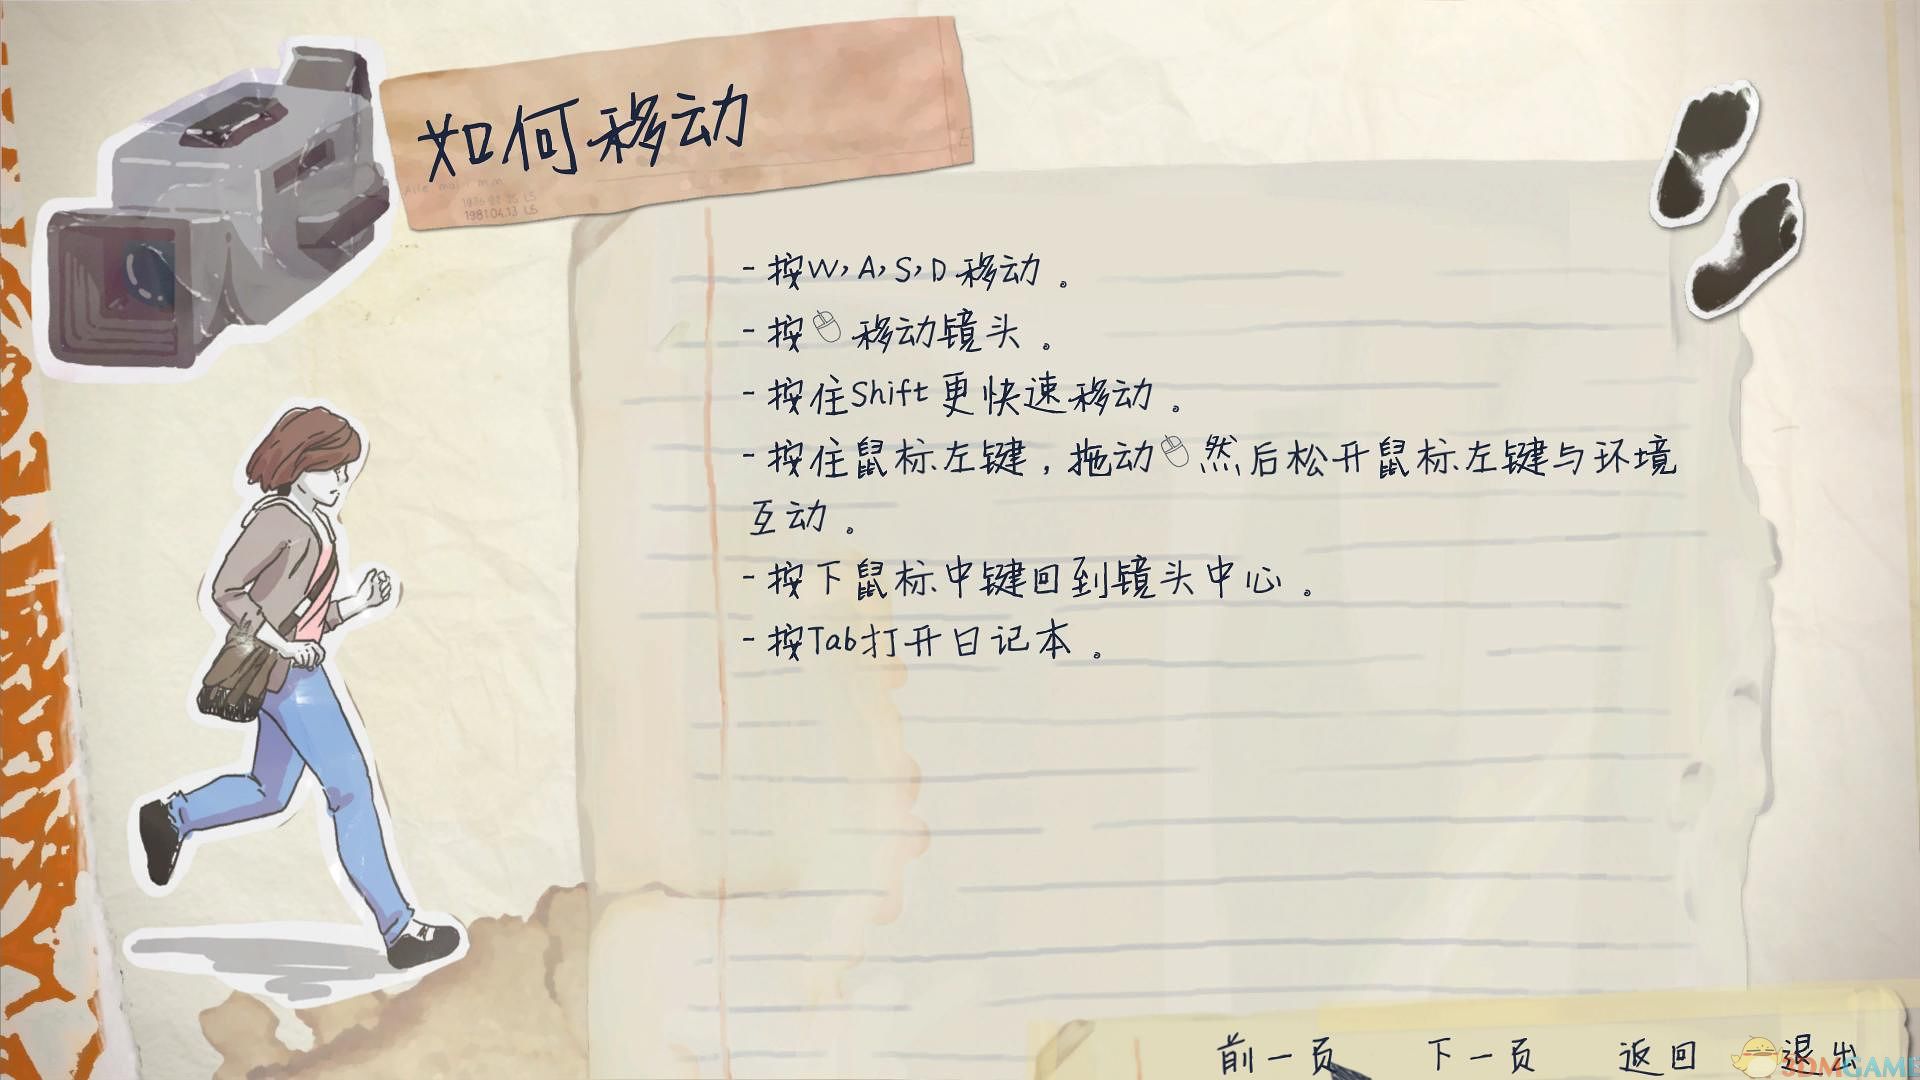 如何移动
1981.04.13 LS
- 按W，A，S，D移动。
- 按移动镜头。
- 按住Shift更快速移动。
- 按住鼠标左键，拖动然后松开鼠标左键与环境
互动。
- 按下鼠标中键回到镜头中心。
- 按Tab打开日记本。
前一页 下一页 返回 退出
3DMGAME